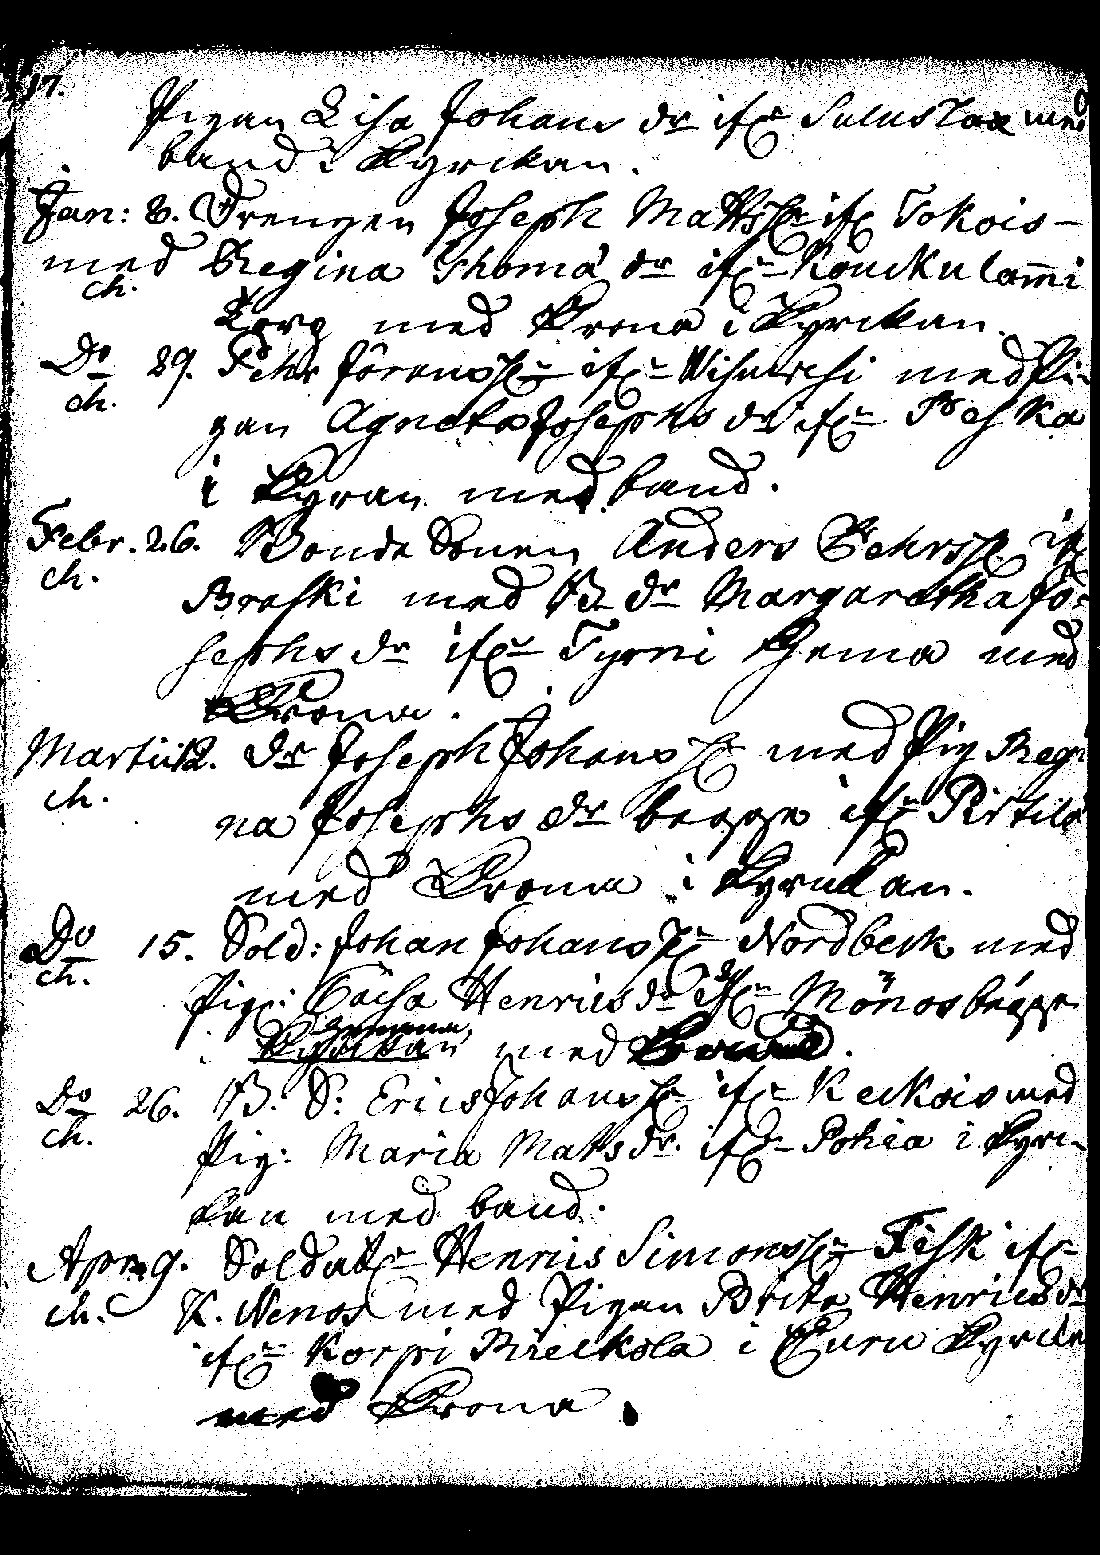 17.
Pigan Lisa Johans dr ifr med
band i Kyrckan.
Jan: 8. Drengen Joseph Mattss: ifr Tokois-
med Regina Thoma dr ifr Kouckulami
ch.
Torp med Krona i Kyrckan.
Do 29. Pehr Jörenss: ifr med Pi-
ch.
gan Agneta Josephs dr ifr Peska
i Kyran med band.
Febr. 26. Bonde Sonen Anders Pehrss: ifr
ch.
Braski med B. dr Margaretha Jo-
sephs dr ifr Tyrni hema med
Krona.
Martii 12. dr Joseph Johanss: med Pig Regi
ch.
na Josephs dr begge ifr Pirtilä
med Krona i Kyrckan.
Do 15. Sold: Johan Johanss: Nordbeck med
ch.
Pig: Caisa Henrics dr ifr Mönos begge
hemma med
Do 26. B. S: Erics Johanss: ifr Keckois med
ch.
Pig: Maria Matts dr. ifr Pohia i Kyrc-
kan med band.
Apr. 9. Soldat: Henrics Simonss: Fisk ifr
ch.
K. Nenos med Pigan Brita Henrics dr
ifr Korpi i Euru Kyrcka
med Krona.